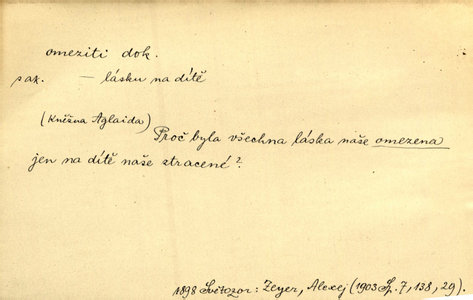 omeziti dok.
sak. — lásku na dítě
(Kněžna Aglaida)
Proč byla všechna láska naše omezena
jen na dítě naše stracené?
1898 Světozor: Zeyer, Alexej (1903 Sp. 7, 138, 29).